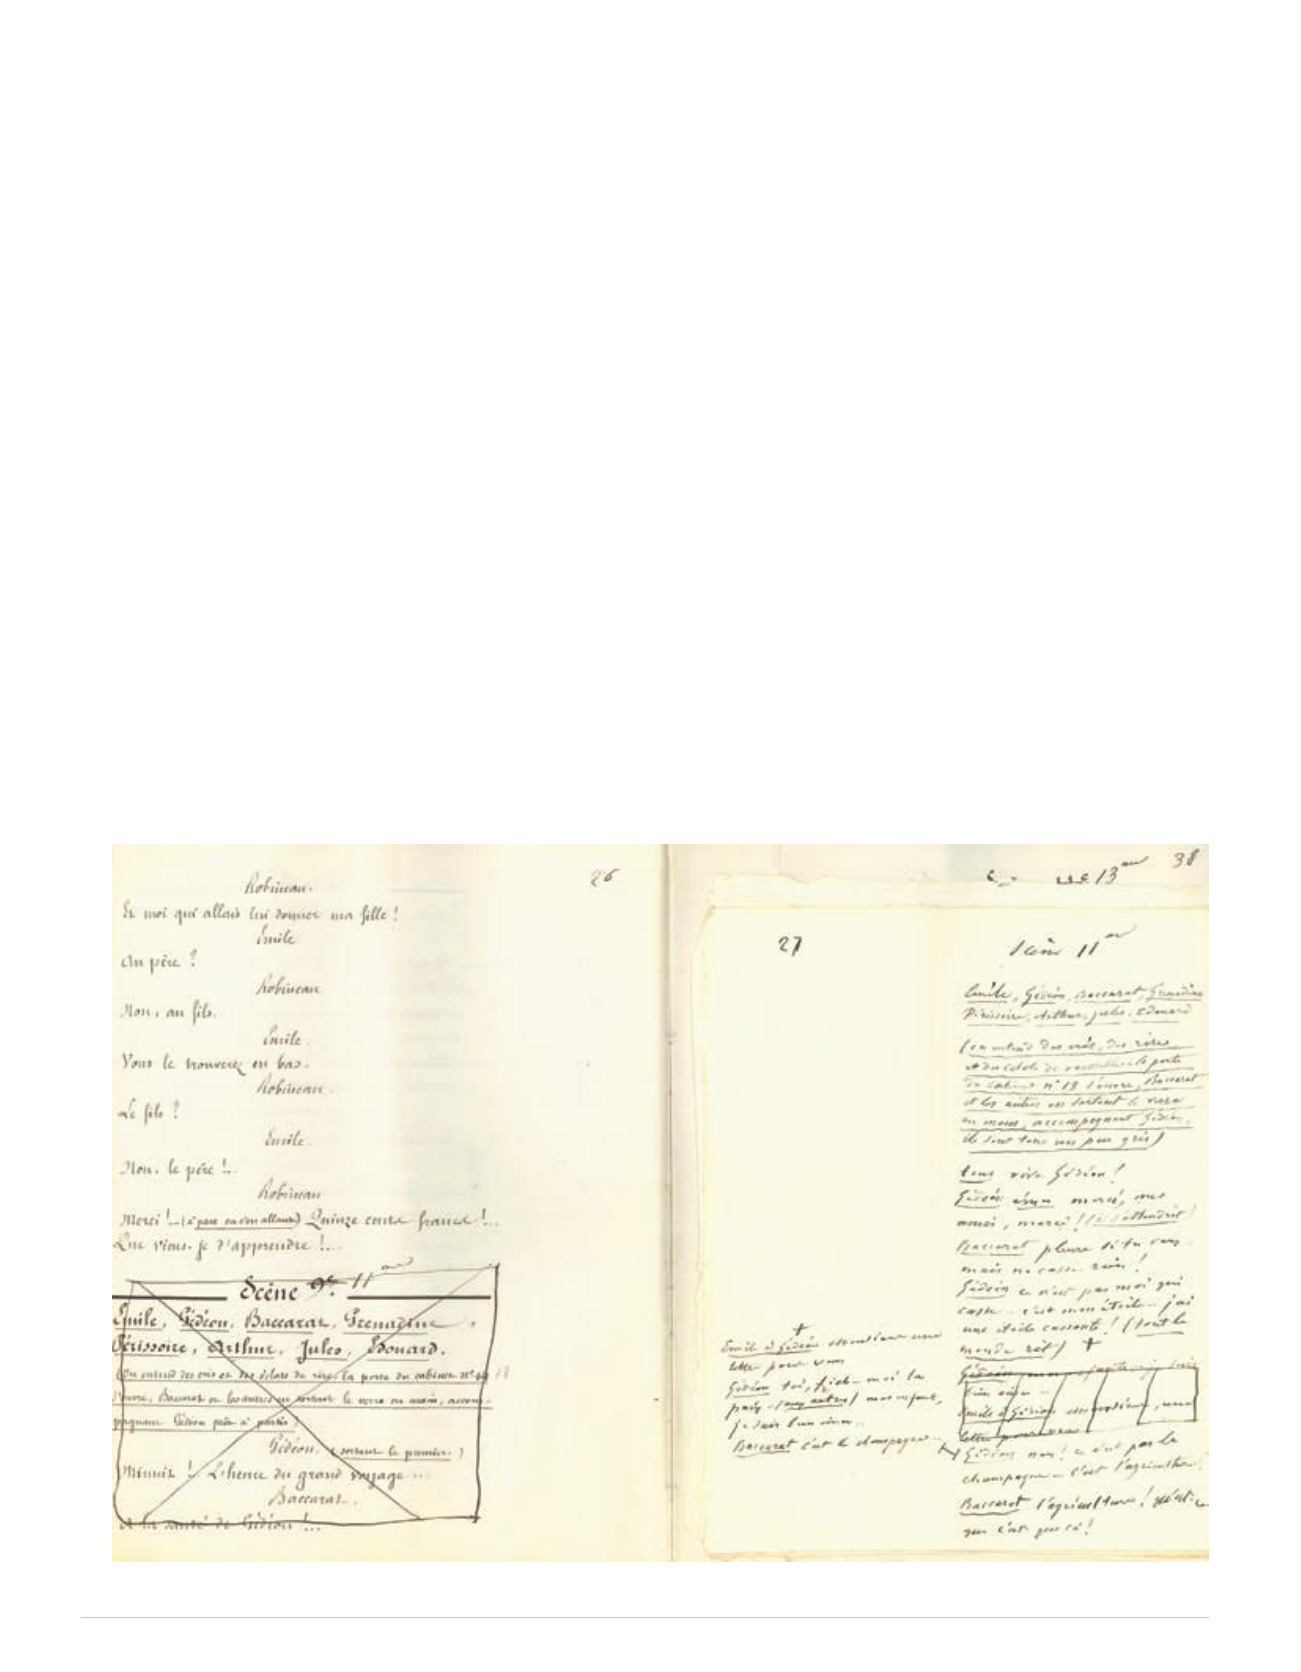 26
Robineau.
Et moi qui allais lui donner ma fille !
Émile
Au père ?
Robineau
Non, au fils.
Émile.
Vous le trouverez en bas.
Robineau.
Le fils ?
Émile.
Non, le père !..
Robineau
Merci !.. (à part en s'en allant) Quinze cents francs !...
Que viens-je d'apprendre !...
Scène 9e. 11me
Émile, Gédéon, Baccarat, Grenadine,
Périssoire, Arthur, Jules, Édouard.
(On entend des cris et des éclats de rire, la porte du cabinet n° 18
s'ouvre, Baccarat et les autres en sortent le verre en main, accom-
pagnant Gédéon prêt à partir)
Gédéon, (sortant le premier.)
Minuit !.. L'heure du grand voyage...
Baccarat.
À la santé de Gédéon !...
38
13me
27
Scène 11me
Émile, Gédéon, Baccarat, Grenadine
Périssoire, Arthur, Jules, Edouard
(on entend des cris, des rires
et des éclats de la porte
du cabinet n° 18 s'ouvre, Baccarat
et les autres en sortent le verre
en main, accompagnant Gédéon,
ils sont tous un peu gris)
tous vive Gédéon !
Gédéon ému merci, mes
amis, merci ! (il s'attendrit)
Baccarat pleure si tu veux
mais ne casse rien !
Gédéon ce n'est pas moi qui
casse.. c'est mon étoile.. j'ai
une étoile cassante ! (tout le
monde rit) +
Gédéon
Émile à Gédéon monsieur, une
lettre pour vous
Gédéon non ! ce n'est pas le
champagne.. c'est l'agriculture.
Baccarat l'agriculture ! qu'est-ce
que c'est que ça !
+
Émile à Gédéon monsieur une
lettre pour vous
Gédéon toi, fich-moi la
paix. (aux autres) mes enfants,
je suis
Baccarat c'est le champagne..